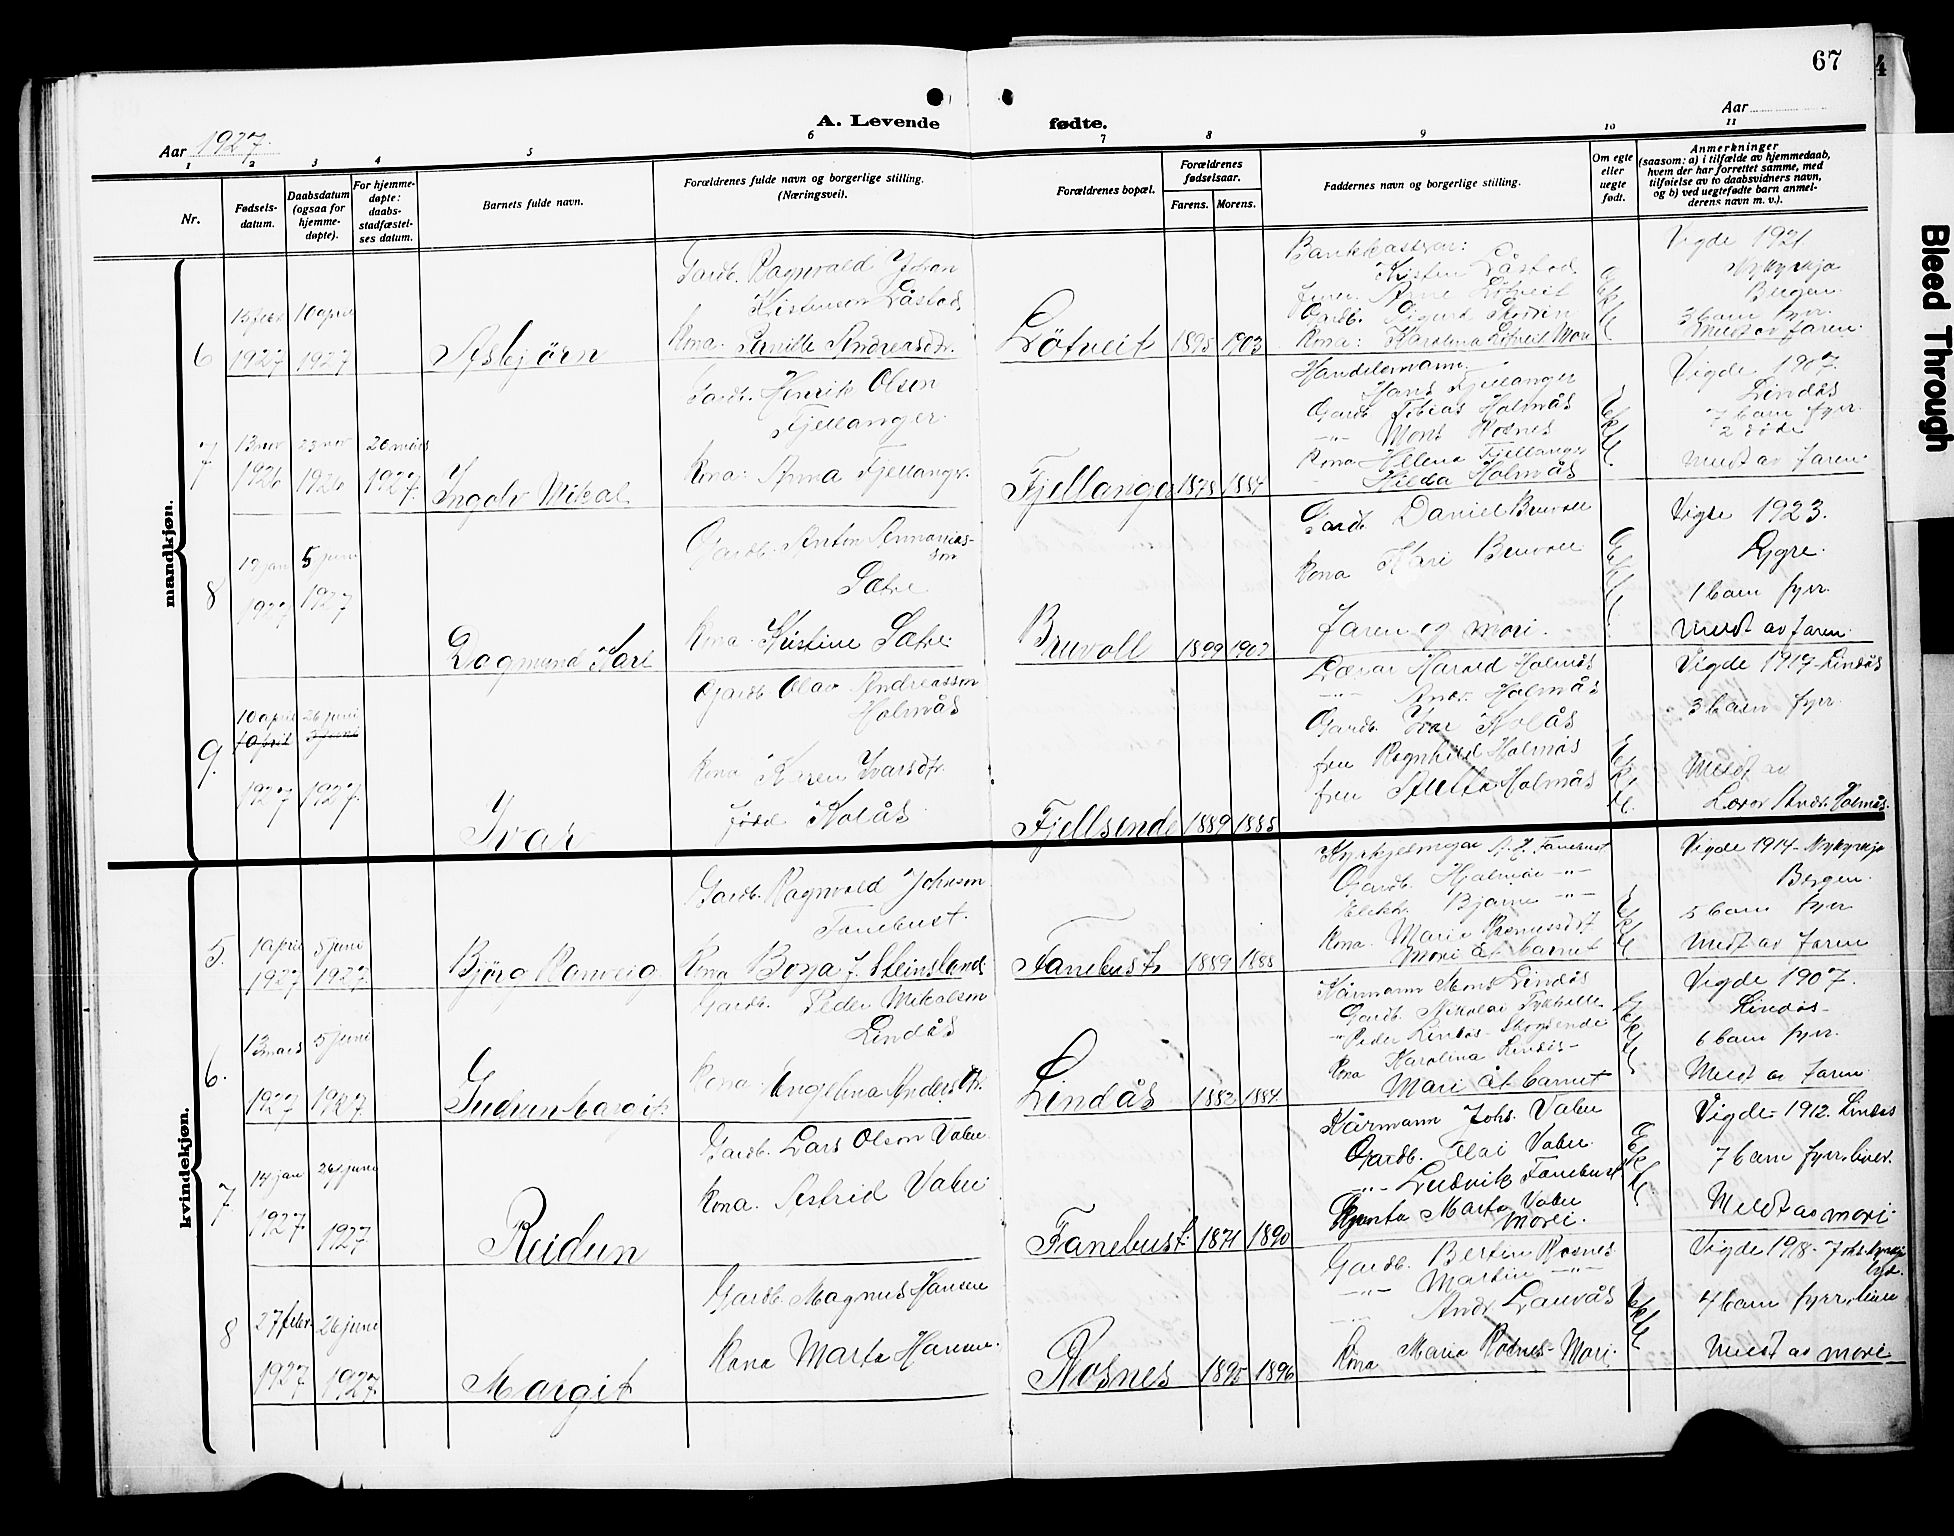 67
4
Bleed Through
Aar 1927.
A. Levende fødte.
Aar
1 2 3 4 5 6 7 8 9 10 11
Nr.
Fødsels-
datum.
Daabsdatum
(ogsaa for
hjemme-
døpte).
For hjemme-
døpte:
daabs-
stadfæstel-
ses datum.
Barnets fulde navn.
Forældrenes fulde navn og borgerlige stilling.
(Næringsvei).
Forældrenes bopæl.
Forældrenes
fødselsaar.
Farens. Morens.
Faddernes navn og borgerlige stilling.
Om egte
eller
uegte
født.
Anmerkninger
(saasom: a) i tilfælde av hjemmedaab,
hvem der har forrettet samme, med
tilføielse av to daabsvidners navn,
og b) ved uegtefødte barn anmel-
derens navn m. v.).
mandkjøn.
6
1927
10 april
1927
Asbjørn
Gardb. Ragnvald Johan
Kristensen Låstad
Kona: Pernille Andreasdr.
Løtveit
1895
1903
Kristen Låstad
Arne Løtveit
Gardb. Sigurd
Kona: Karolina Løtveit Mori
Ekte
Vigde 1921
Nykyrkja
Bergen.
3 barn fyrr.
Meldt av faren.
7
13 nov
1926
1926
26 mars
1927.
Ingolv Mikal
Gardb. Henrik Olsen
Fjellanger.
Kona: Anna Fjellanger.
Fjellanger
1878
1884
Handelsmann
Hans Fjellanger
Gardb Tobias Holmås
-"- Mons Rosnes
Kona Helena Fjellanger
Hilda Holmås
Ekte.
Vigde 1907.
Lindås
7 barn fyrr.
2 døde
Meldt av faren.
8
1927
5 juni
1927
Dagmund Karl
Gardb. Anton
Sætre
Kona Kristine Sætre.
Bruvoll
1899
1902
Gardb Daniel Bruvoll
Kona Kari Bruvoll
Faren og mori.
Ekte
Vigde 1923.
Lygre.
1 barn fyrr.
Meldt av faren.
9.
10 april
1927
26 juni
1927.
Ivar
Gardb Olav Andreassen
Holmås
Kona Karen Ivarsdtr.
født Kolås
Fjellsende
1889
1888
Lærar Harald Holmås
-"- Andr. Holmås
Gardb. Ivar Kolås
fru Ragnhild Holmås
fru Holmås
Ekte.
Vigde 1917 - Lindås
3 barn fyrr.
Meldt av
Lærar Andr. Holmås.
kvindekjøn.
5.
1 april
1927
5 juni
1927.
Bjørg Ranveig
Gardb. Ragnvald Johnsen
Fanebust.
Kona Borga J. Steinsland.
Fanebust
1889
1888
Kyrkjetenar A. J. Fanebust
Gardb. Hjalmar -"-
Bjarne -"-
Kona. Marie Rasmusdtr
Mori åt barnet
Ekte
Vigde 1914 - Nykyrkja
Bergen.
5 barn fyrr
Meldt av faren
6.
13 mars
1927
5 juni
1927
Gudrun Margit
Gardb. Peder Mikalsen
Lindås
Kona Angelina Andersdtr.
Lindås
1882
1884
Kårmann Mons Lindås
Gardb. Nikolai
-"- Peder Lindås - Skogsende
Kona Karolina Lindås -
Mori åt barnet
Ekte
Vigde 1907.
Lindås -
6 barn fyrr.
Meldt av faren.
7
14 jan
1927.
26 juni
1927.
Reidun
Gardb. Lars Olsen Vabu.
Kona. Astrid Vabu.
Fanebust.
1871
1890
Kårmann Johs. Vabu
Gardb. Vabu.
-"- Ludvik Fanebust
Gjenta Marta Vabu
Mori.
Ekte.
Vigde 1912. Lindås
7 barn fyrr, liver.
Meldt av mori.
8
27 febr.
1927
26 juni
1927.
Margit
Gardb. Magnus Hansen
Kona Marta Hansen.
Rosnes
1895
1896
Gardb. Bertin Rosnes
-"- Martin -"-
Andr. Lauvås
Kona Maria Rosnes - Mori.
Ekte
Vigde 1918 - Johs. kyrkja
4 barn fyrr, liver
Meldt av mori